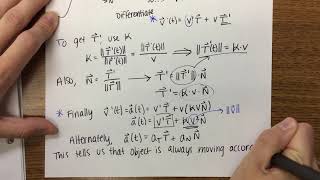 Differentiate
* v⃗'(t) = v'T⃗ + vT⃗'
To get T⃗', use K
K = ||T⃗'(t)|| / ||r⃗'(t)|| = ||T⃗'(t)|| / v → ||T⃗'(t)|| = K·v
Also, N⃗ = T⃗' / ||T⃗'|| → T⃗' = ||T⃗'||·N⃗
T⃗' = K·v·N⃗
* Finally v⃗'(t) = a⃗(t) = v'T⃗ + v(KvN⃗) → ||v⃗||
a⃗(t) = v'T⃗ + Kv²N⃗
Alternately, a⃗(t) = a_T T⃗ + a_N N⃗
This tells us that object is always moving accor